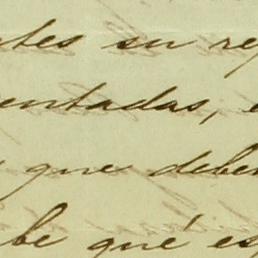 ntes su rep
entadas, e
que deben
be que es